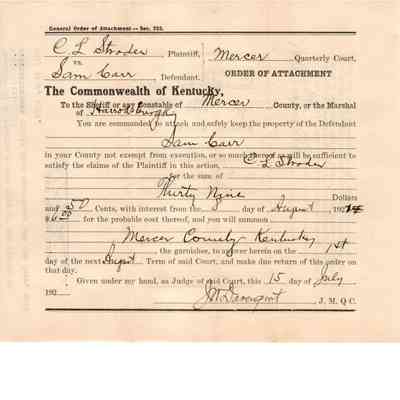 General Order of Attachment—Sec. 222.
C L Stroder Plaintiff,
vs.
Sam Carr Defendant.
Mercer Quarterly Court,
ORDER OF ATTACHMENT
The Commonwealth of Kentucky,
To the Sheriff or any Constable of Mercer County, or the Marshal
of Harrodsburg Ky
You are commanded to attach and safely keep the property of the Defendant
Sam Carr
in your County not exempt from execution, or so much thereof as will be sufficient to
satisfy the claims of the Plaintiff in this action, C L Stroder
for the sum of
Thirty Nine Dollars
and 50 Cents, with interest from the day of August 192
$6.00 for the probable cost thereof, and you will summon
Mercer County Kentucky
the garnishee, to answer herein on the 1st
day of the next August Term of said Court, and make due return of this order on
that day.
Given under my hand, as Judge of said Court, this 15 day of July
192 J. M. Q. C.